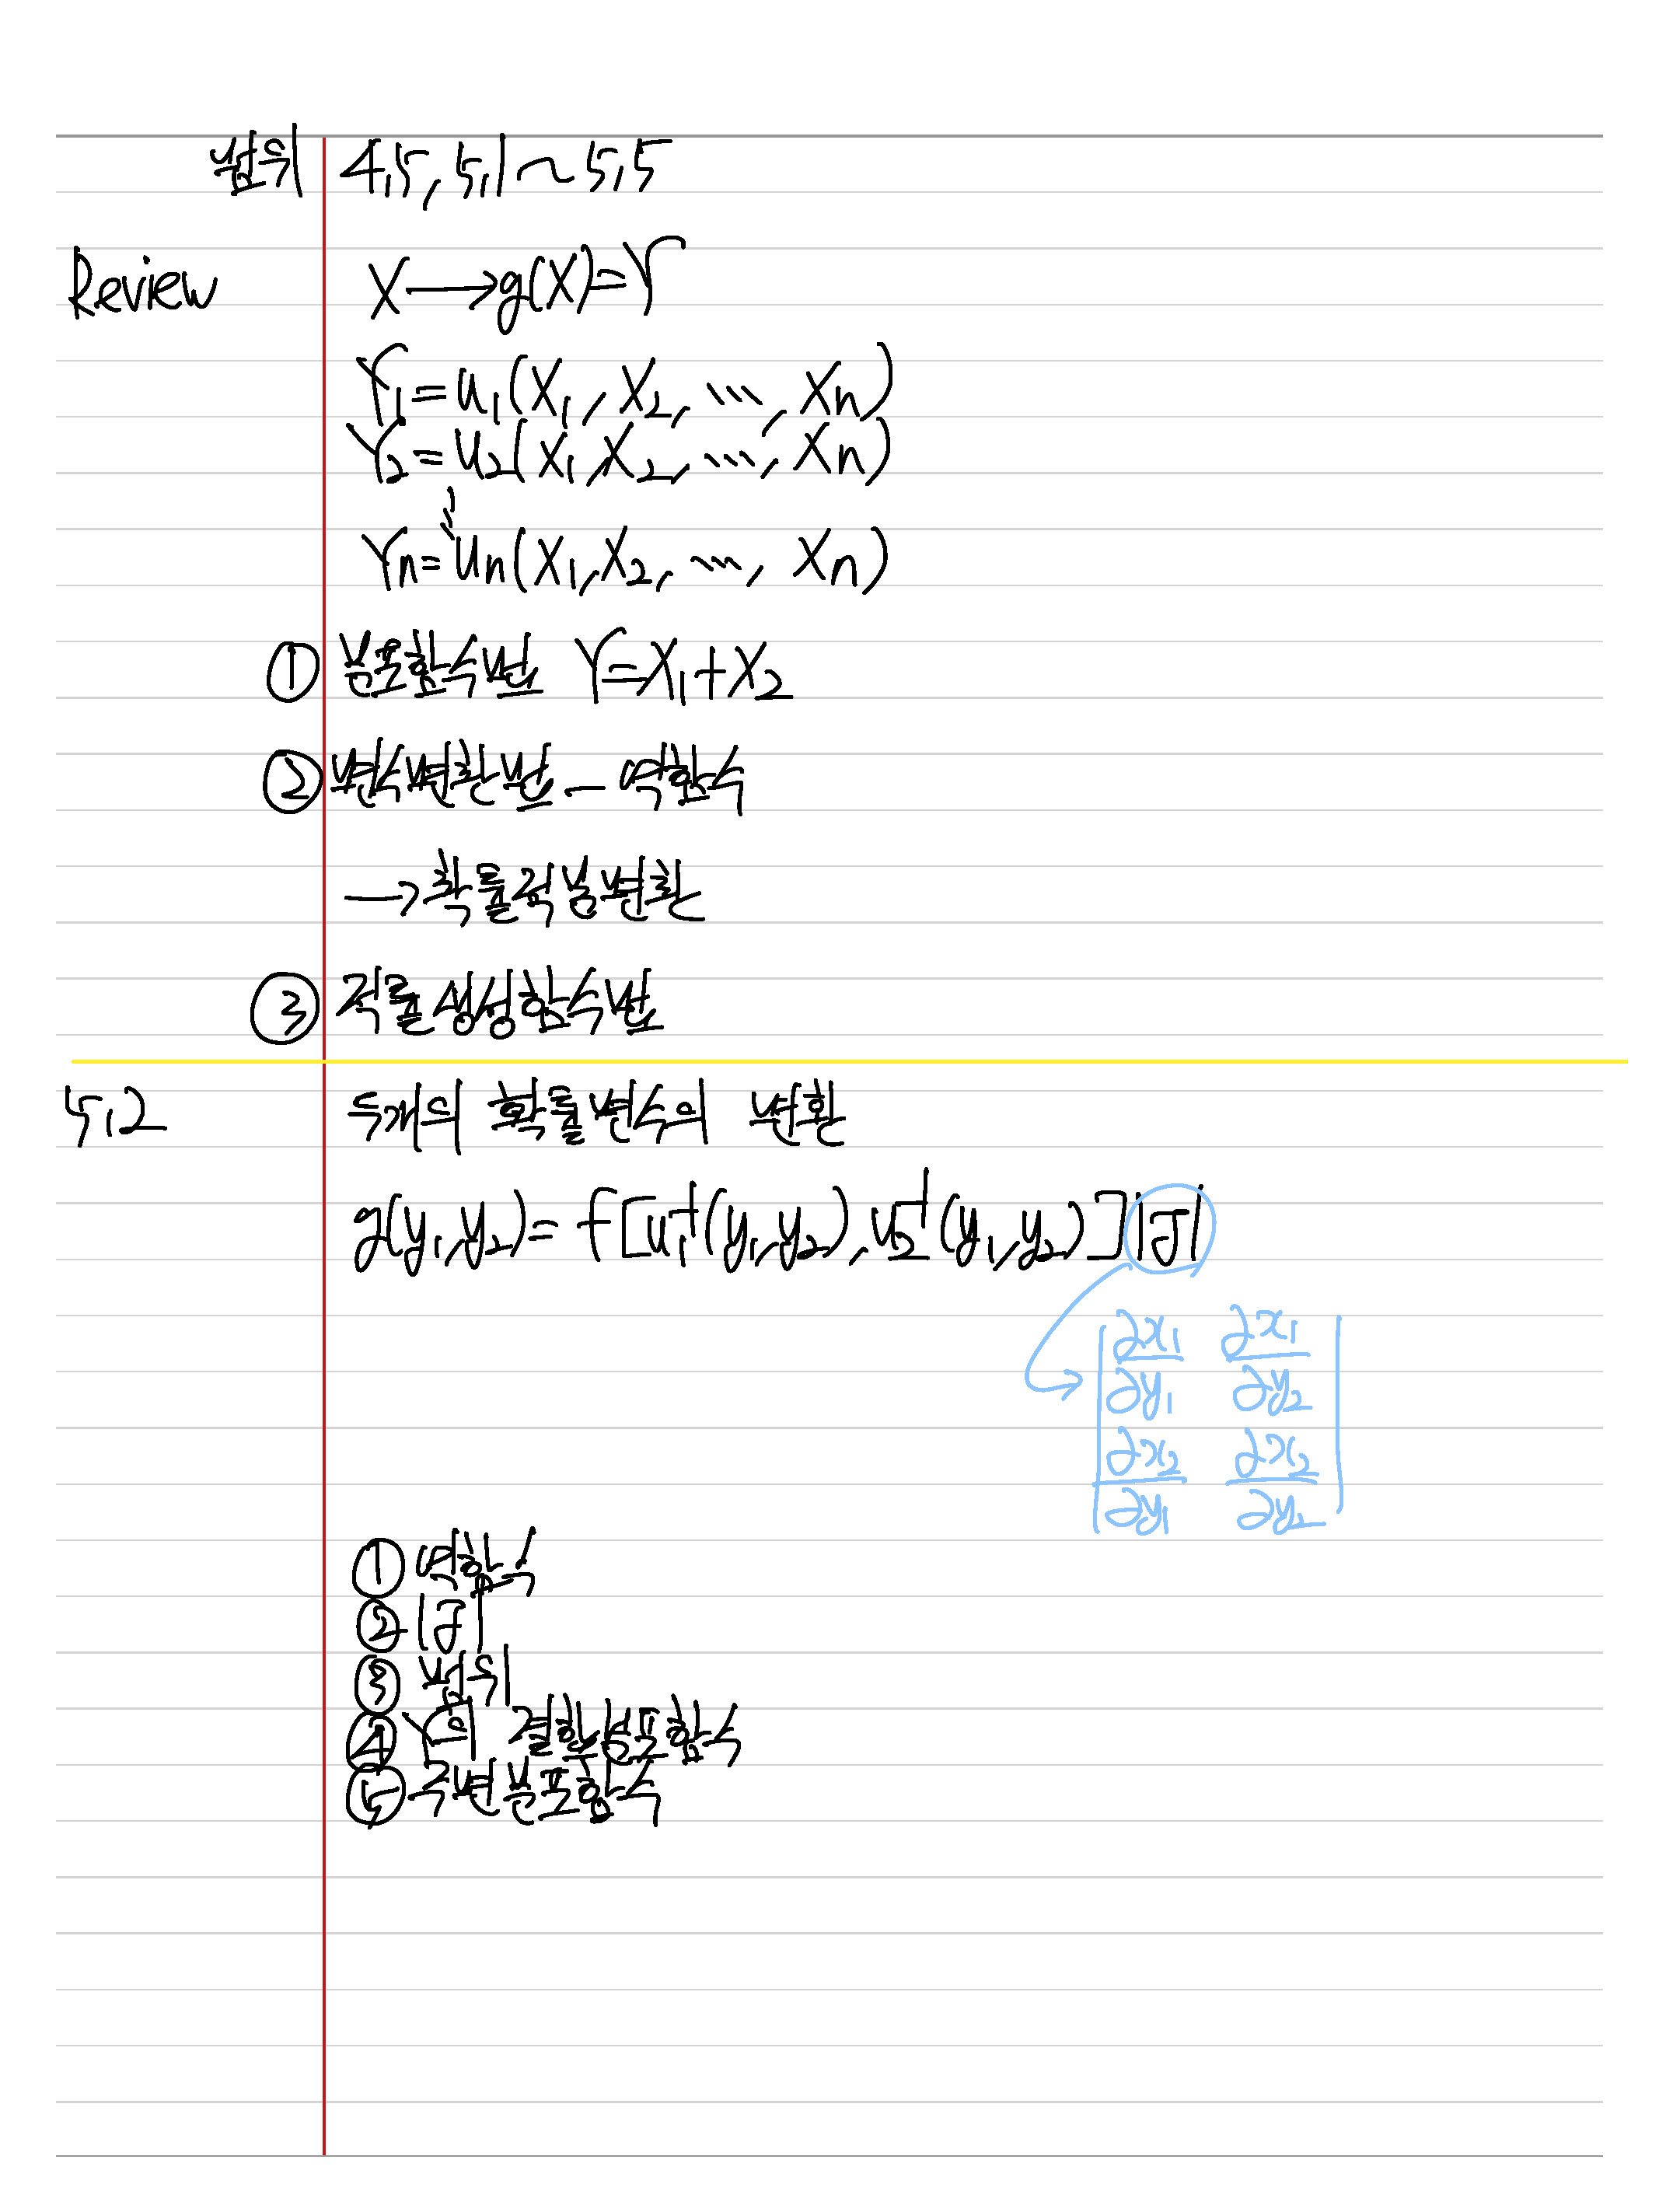 범위 4.5, 5.1~5.5
Review X→g(X)=Y
Y₁=u₁(X₁, X₂, ..., Xn)
Y₂=u₂(X₁, X₂, ..., Xn)
⋮
Yn=un(X₁, X₂, ..., Xn)
① 분포함수법 Y=X₁+X₂
② 변수변환법 - 역함수
→확률적분변환
③ 적률생성함수법
5.2 두개의 확률변수의 변환
g(y₁,y₂)= f[u₁⁻¹(y₁,y₂), u₂⁻¹(y₁,y₂)]|J|
∂x₁/∂y₁ ∂x₁/∂y₂
∂x₂/∂y₁ ∂x₂/∂y₂
① 역함수
② |J|
③ 범위
④ Y의 결합분포함수
⑤ 주변분포함수